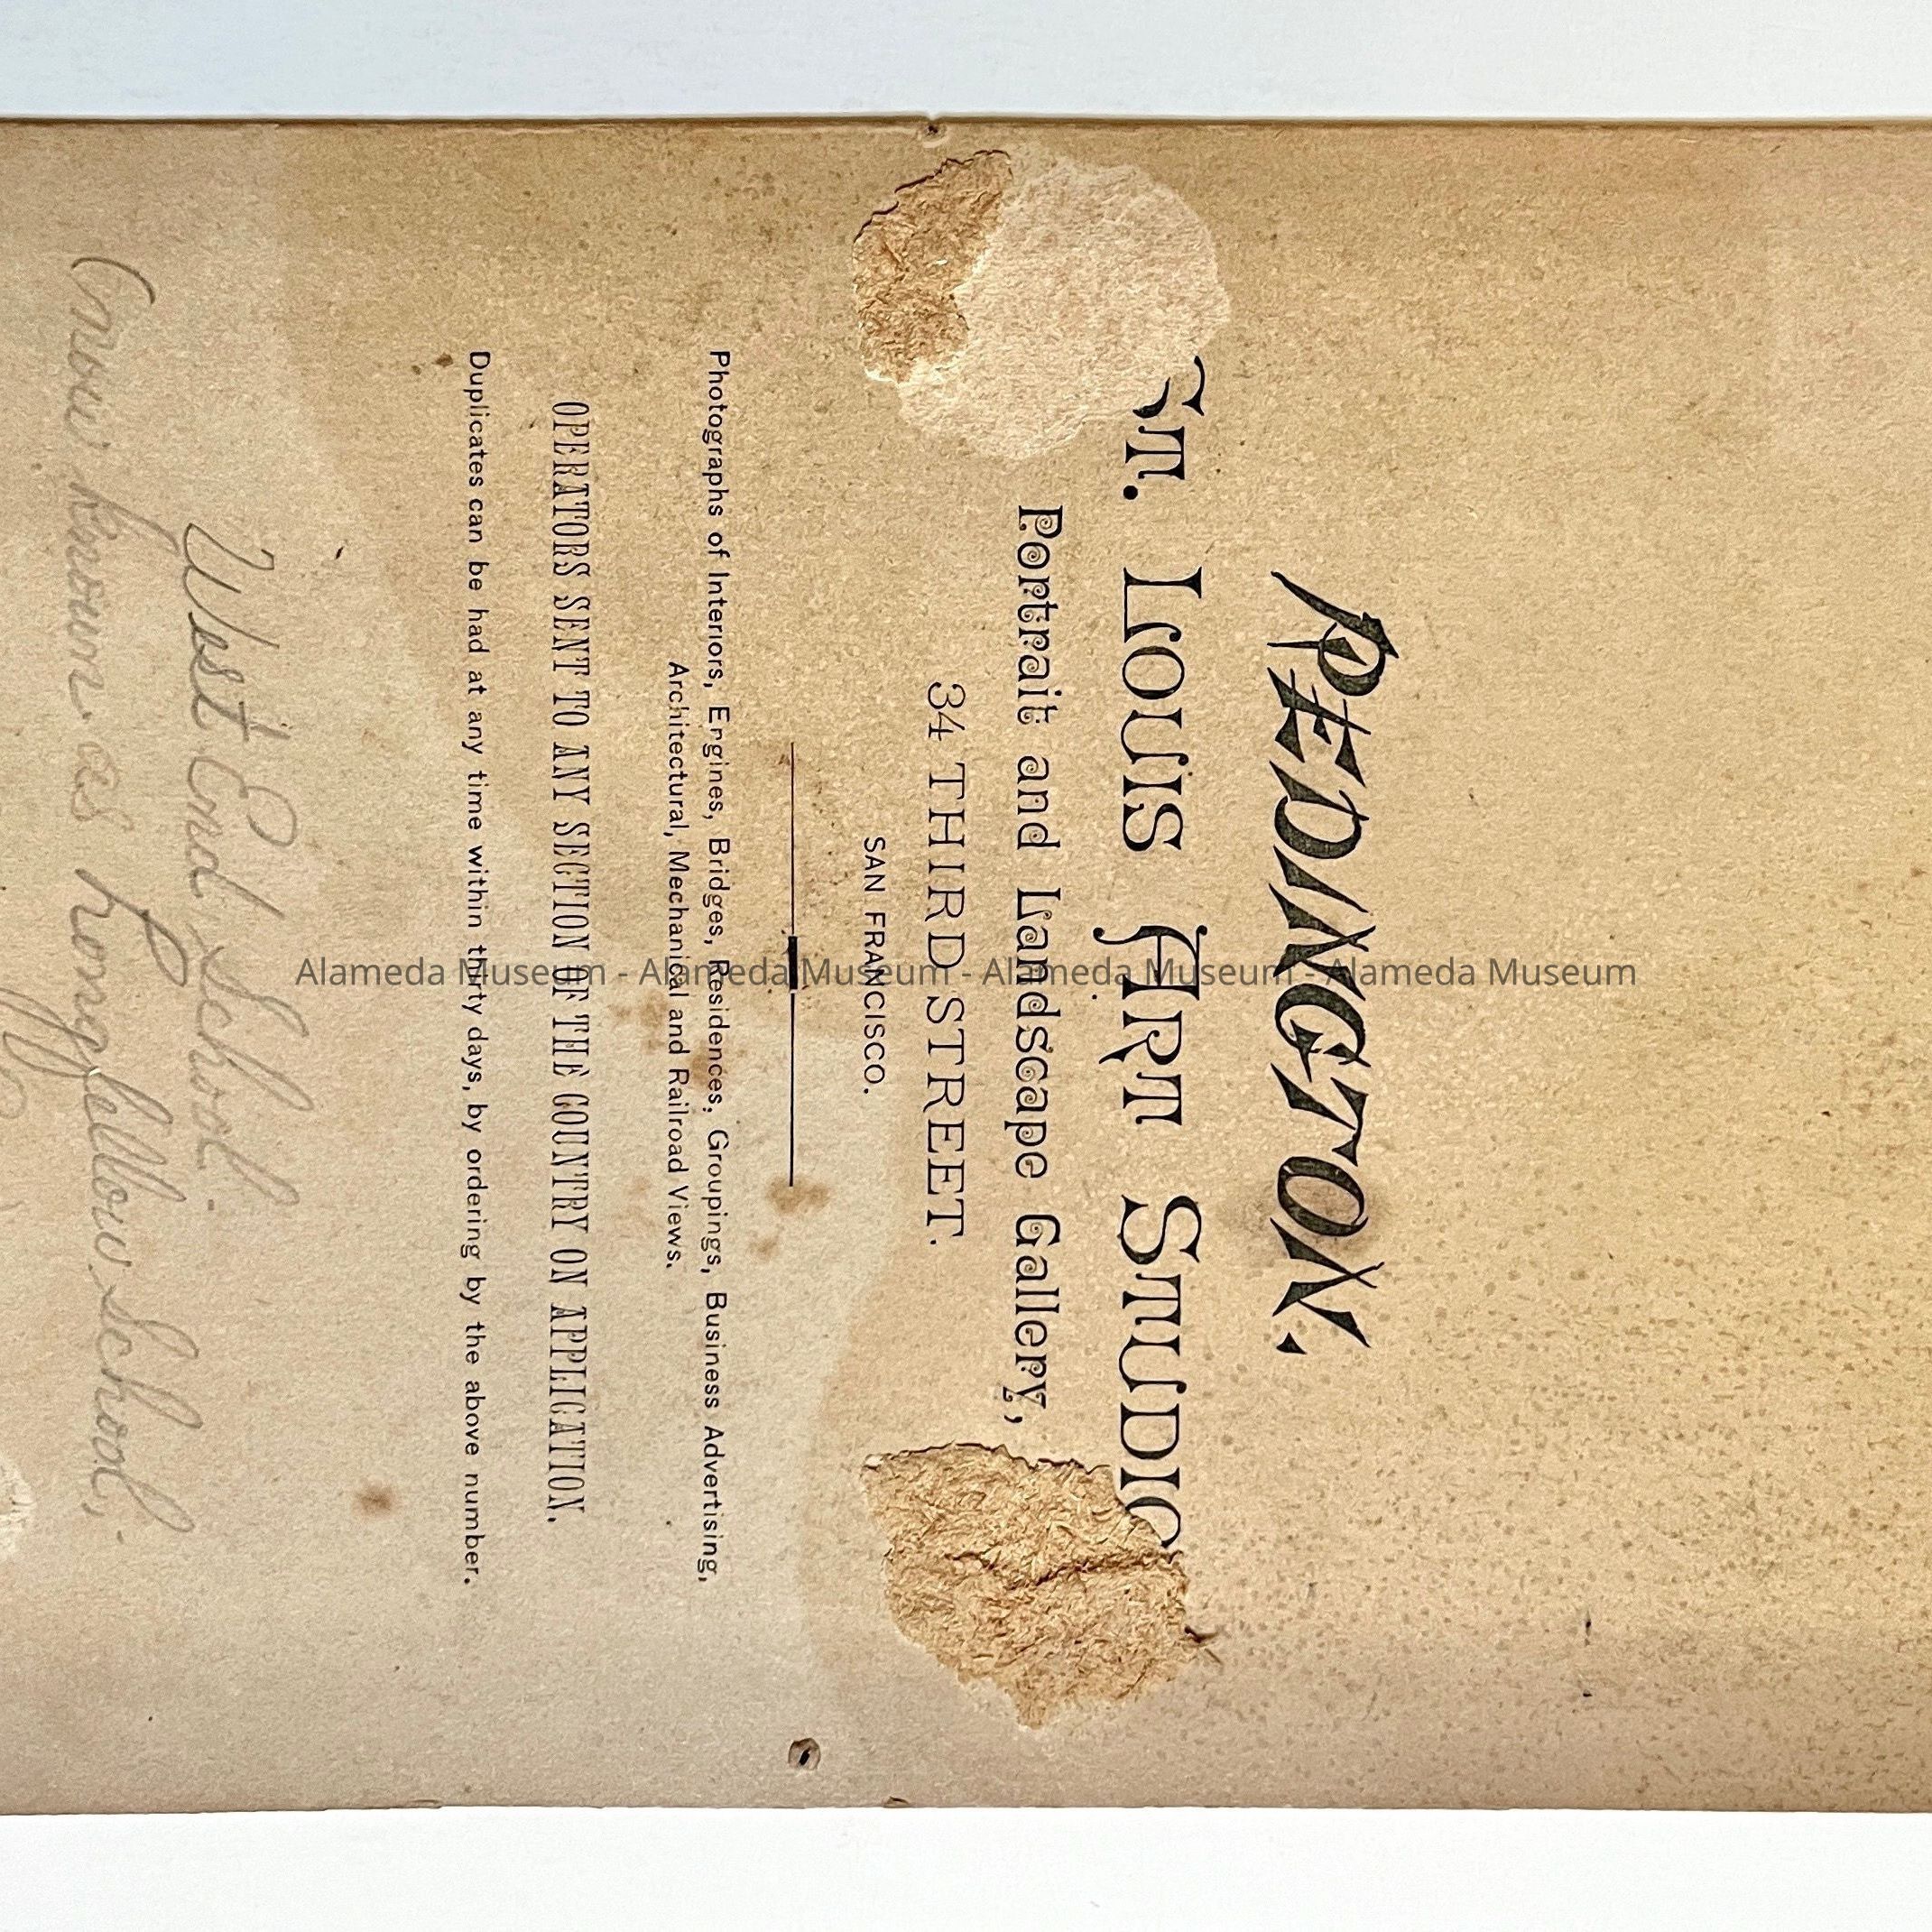 REDINGTON.
St. Louis Art Studio
Portrait and Landscape Gallery,
34 THIRD STREET.
SAN FRANCISCO.
Photographs of Interiors, Engines, Bridges, Residences, Groupings, Business Advertising,
Architectural, Mechanical and Railroad Views.
OPERATORS SENT TO ANY SECTION OF THE COUNTRY ON APPLICATION.
Duplicates can be had at any time within thirty days, by ordering by the above number.
West End School.
(now known as Longfellow School.
Alameda Museum - Alameda Museum - Alameda Museum - Alameda Museum